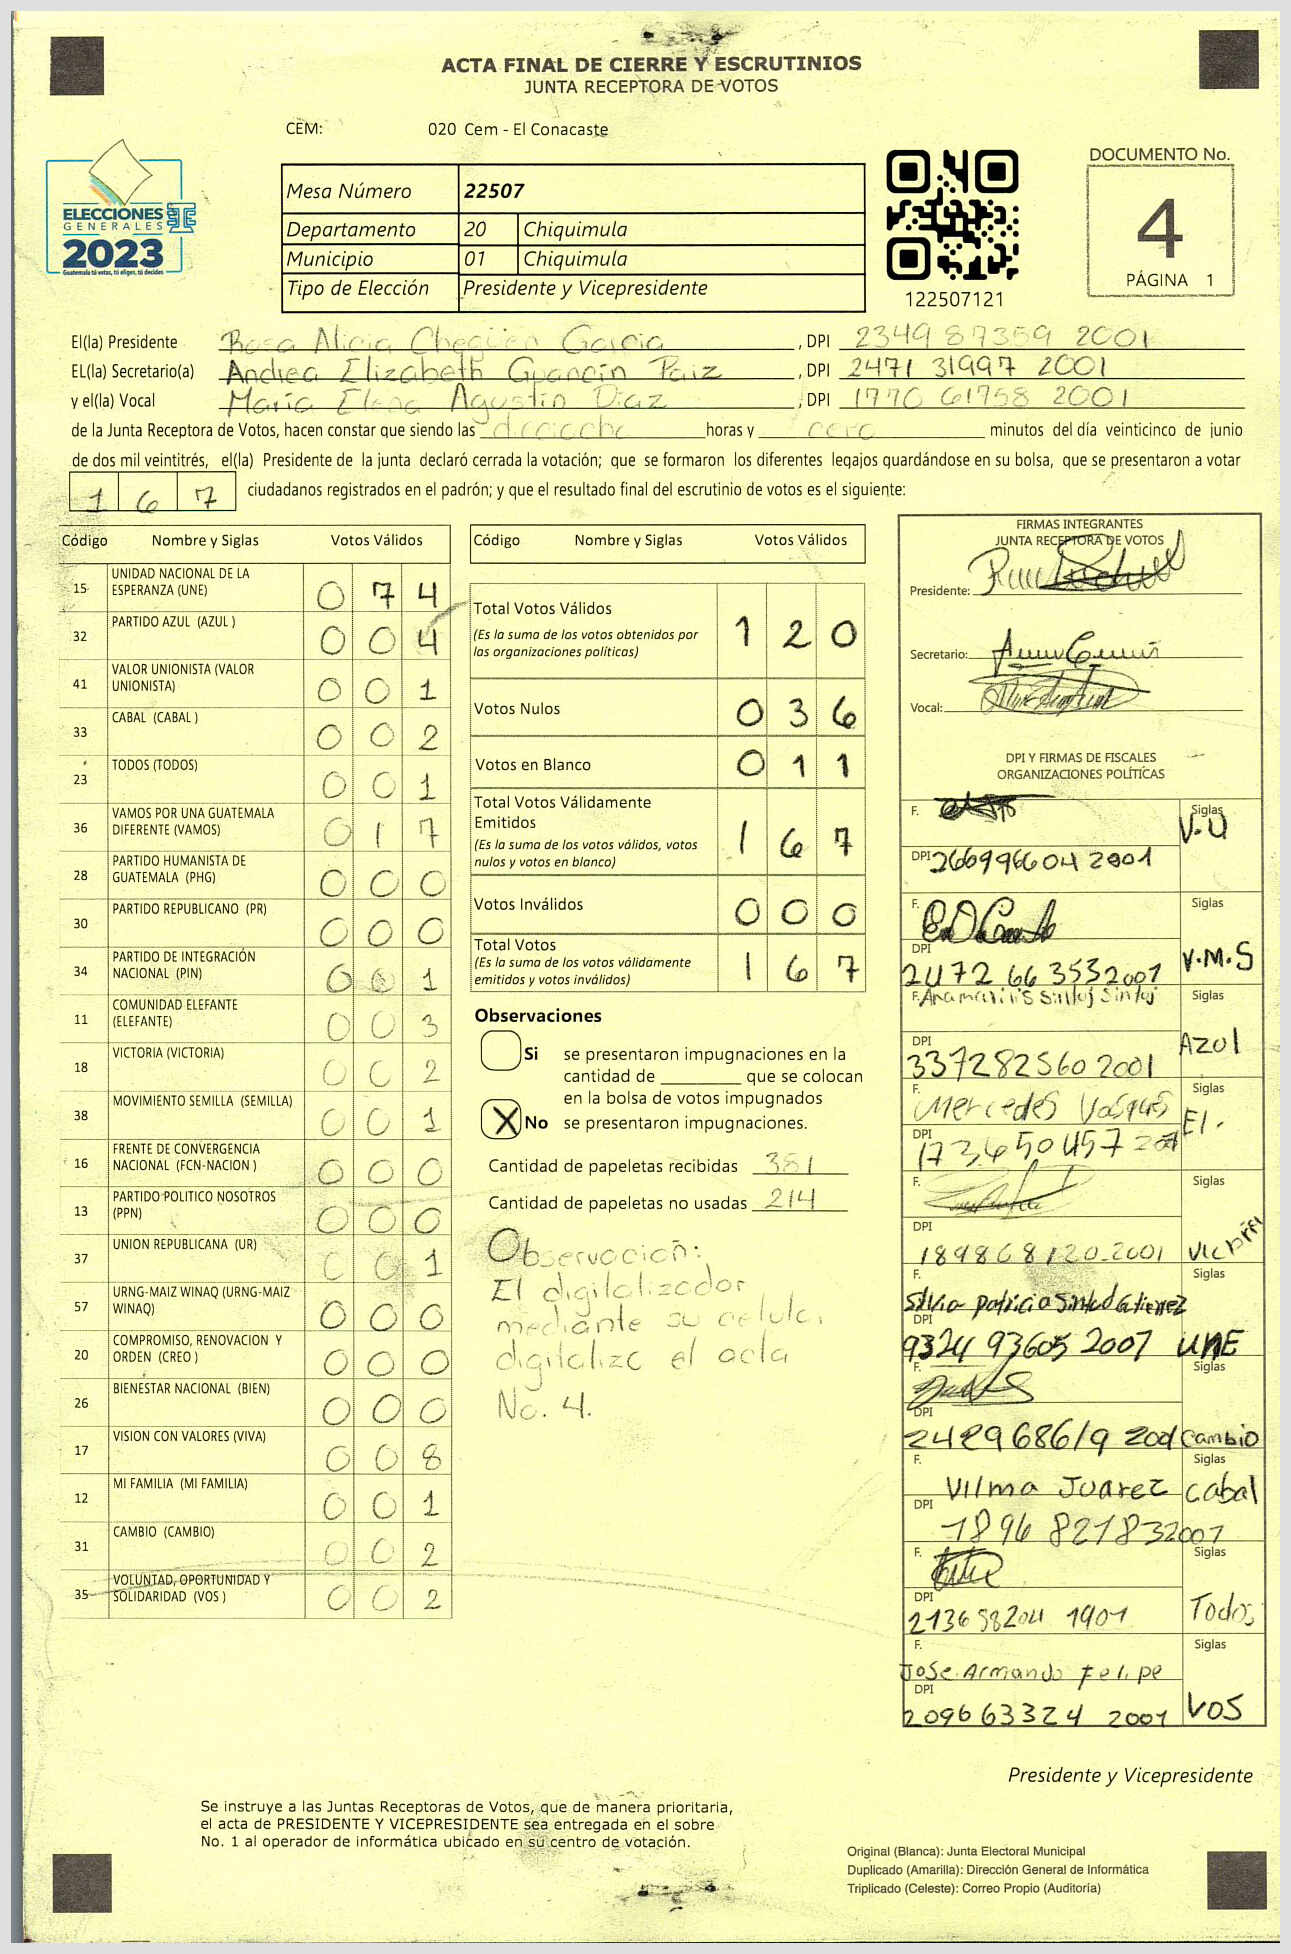 ACTA FINAL DE CIERRE Y ESCRUTINIOS
JUNTA RECEPTORA DE VOTOS
CEM: 020 Cem - El Conacaste
ELECCIONES
GENERALES
2023
Guatemala tú votas, tú eliges, tú decides
Mesa Número 22507
Departamento 20 Chiquimula
Municipio 01 Chiquimula
Tipo de Elección Presidente y Vicepresidente
122507121
DOCUMENTO No.
4
PÁGINA 1
El(la) Presidente Rosa Alicia García , DPI 2349 87359 2001
EL(la) Secretario(a) Andrea Elizabeth Guancín Paiz , DPI 2471 31997 2001
y el(la) Vocal María Elena Agustín Díaz , DPI 1770 61758 2001
de la Junta Receptora de Votos, hacen constar que siendo las dieciocho horas y cero minutos del día veinticinco de junio
de dos mil veintitrés, el(la) Presidente de la junta declaró cerrada la votación; que se formaron los diferentes legajos guardándose en su bolsa, que se presentaron a votar
1 6 7 ciudadanos registrados en el padrón; y que el resultado final del escrutinio de votos es el siguiente:
Código Nombre y Siglas Votos Válidos
15 UNIDAD NACIONAL DE LA
ESPERANZA (UNE) 0 7 4
32 PARTIDO AZUL (AZUL ) 0 0 4
41 VALOR UNIONISTA (VALOR
UNIONISTA) 0 0 1
33 CABAL (CABAL ) 0 0 2
23 TODOS (TODOS) 0 0 1
36 VAMOS POR UNA GUATEMALA
DIFERENTE (VAMOS) 0 1 7
28 PARTIDO HUMANISTA DE
GUATEMALA (PHG) 0 0 0
30 PARTIDO REPUBLICANO (PR) 0 0 0
34 PARTIDO DE INTEGRACIÓN
NACIONAL (PIN) 0 0 1
11 COMUNIDAD ELEFANTE
(ELEFANTE) 0 0 3
18 VICTORIA (VICTORIA) 0 0 2
38 MOVIMIENTO SEMILLA (SEMILLA) 0 0 1
16 FRENTE DE CONVERGENCIA
NACIONAL (FCN-NACION ) 0 0 0
13 PARTIDO POLITICO NOSOTROS
(PPN) 0 0 0
37 UNION REPUBLICANA (UR) 0 0 1
57 URNG-MAIZ WINAQ (URNG-MAIZ
WINAQ) 0 0 0
20 COMPROMISO, RENOVACION Y
ORDEN (CREO ) 0 0 0
26 BIENESTAR NACIONAL (BIEN) 0 0 0
17 VISION CON VALORES (VIVA) 0 0 8
12 MI FAMILIA (MI FAMILIA) 0 0 1
31 CAMBIO (CAMBIO) 0 0 2
35 VOLUNTAD, OPORTUNIDAD Y
SOLIDARIDAD (VOS ) 0 0 2
Código Nombre y Siglas Votos Válidos
Total Votos Válidos 1 2 0
(Es la suma de los votos obtenidos por
las organizaciones políticas)
Votos Nulos 0 3 6
Votos en Blanco 0 1 1
Total Votos Válidamente
Emitidos 1 6 7
(Es la suma de los votos válidos, votos
nulos y votos en blanco)
Votos Inválidos 0 0 0
Total Votos 1 6 7
(Es la suma de los votos válidamente
emitidos y votos inválidos)
Observaciones
Si se presentaron impugnaciones en la
cantidad de que se colocan
en la bolsa de votos impugnados
X No se presentaron impugnaciones.
Cantidad de papeletas recibidas 381
Cantidad de papeletas no usadas 214
Observación:
El digitalizador
mediante su celular
digitalizo el acta
No. 4.
FIRMAS INTEGRANTES
JUNTA RECEPTORA DE VOTOS
Presidente:
Secretario:
Vocal:
DPI Y FIRMAS DE FISCALES
ORGANIZACIONES POLÍTICAS
F. Siglas V.U
DPI 266996604 2001
F. Siglas V.M.S
DPI 2472 66 353 2001
F. Siglas Azul
DPI 337282560 2001
F. Mercedes Vasques Siglas El.
DPI
F. Siglas Victoria
DPI 189868120.2001
F. Silvia Patricia Siglas UNE
DPI 9324 93605 2007
F. Siglas Cambio
DPI 2429 68619 2001
F. Vilma Juarez Siglas Cabal
DPI 1896 82183 2001
F. Siglas Todos
DPI 2136 58204 1901
F. Jose Armando Felipe Siglas VOS
DPI 2096 63324 2001
Presidente y Vicepresidente
Se instruye a las Juntas Receptoras de Votos, que de manera prioritaria,
el acta de PRESIDENTE Y VICEPRESIDENTE sea entregada en el sobre
No. 1 al operador de informática ubicado en su centro de votación.
Original (Blanca): Junta Electoral Municipal
Duplicado (Amarilla): Dirección General de Informática
Triplicado (Celeste): Correo Propio (Auditoría)